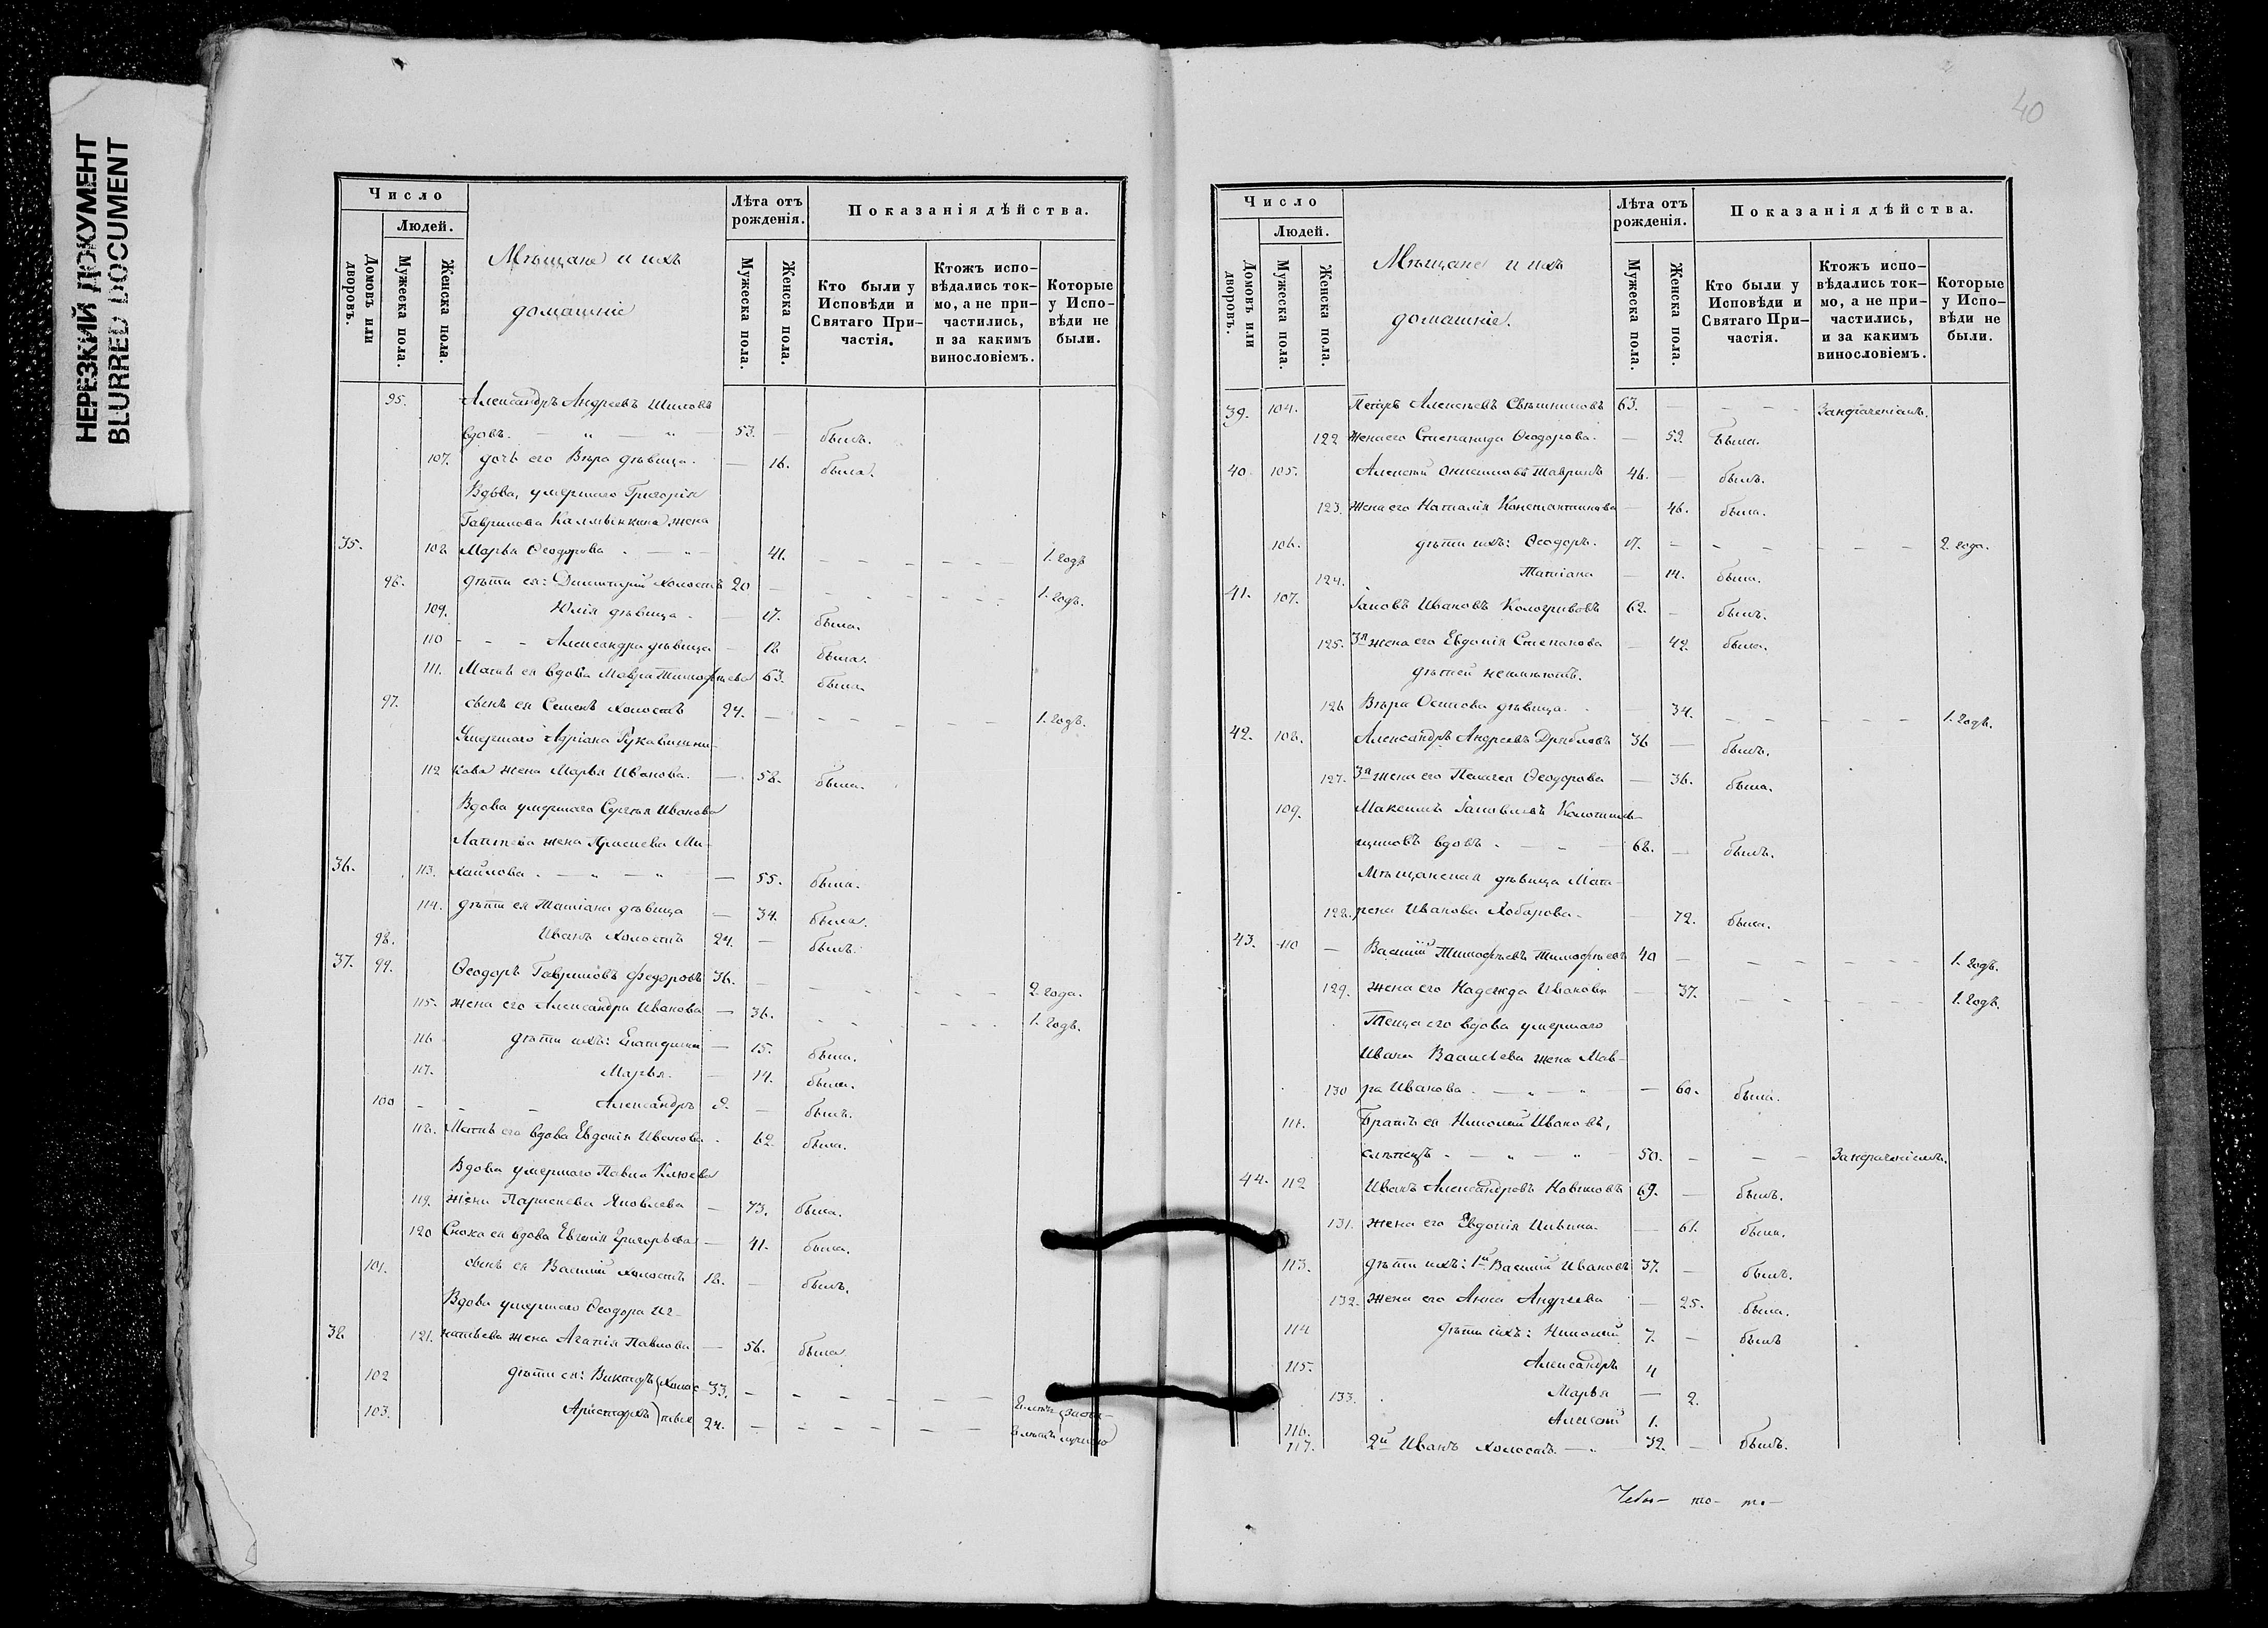 НЕРЕЗКИЙ ДОКУМЕНТ
BLURRED DOCUMENT
Число
Людей.
Домовъ или дворовъ.
Мужеска пола.
Женска пола.
Мѣщане и ихъ
домашніе
Лѣта отъ рожденія.
Мужеска пола.
Женска пола.
Показанія дѣйства.
Кто были у Исповѣди и Святаго Причастія.
Ктожъ исповѣдались токмо, а не причастились, и за какимъ винословіемъ.
Которые у Исповѣди не были.
95. Александръ Андреевъ Шиловъ
вдовъ. — „ — „ — 53. — былъ.
107. дочь его Вѣра дѣвица. — 16. была.
Вдова, умершаго Григорія
Гаврилова Калмыкина жена
35. 108 Марья Ѳеодорова . — „ — 41. - - - - - - 1. годъ
96. дѣти ея: Димитрій холостъ 20 — - - - - - - 1. годъ.
109. Юлія дѣвица. — 17. была.
110 - - - Александра дѣвица — 12 была.
111. Мать ея вдова Мавра Тимофѣева 63. была.
97. сынъ ея Семенъ холостъ 24. — - - - - - - 1. годъ.
Умершаго Адріана Рукавишни-
112 кова жена Марья Иванова. — 58. была.
Вдова умершаго Сергѣя Иванова
Лаптева жена Ми-
36. 113. хайлова . — „ — „ — — 55. была.
114. дѣти ея Татіана дѣвица — 34. была.
98. Иванъ холостъ 24. — былъ.
37. 99. Ѳеодоръ Гавриловъ Федоровъ 36. — - - - - - 2. года.
115. жена его Александра Иванова — 36. - - - - - 1. годъ.
116 дѣти ихъ: Екатерина — 15. была.
117. Марья. — 14. была.
100 - - - Александръ 9. — былъ.
118. Мать его вдова Евдокія Иванова . 62. была.
Вдова умершаго Павла Клюева
119. жена Яковлева — 73. была.
120 Сноха ея вдова Евгенія Григорьева — 41. была.
101. сынъ ея Василій холостъ 18. — былъ.
Вдова умершаго Ѳеодора Иг-
38 121. натьева жена Агапія Павлова — 56. была.
102 дѣти ея: Викторъ (холос- 33. - - - - - -
103. Аристархъ) тые 24. — - - - - -
40
Число
Людей.
Домовъ или дворовъ.
Мужеска пола.
Женска пола.
Мѣщане и ихъ
домашніе.
Лѣта отъ рожденія.
Мужеска пола.
Женска пола.
Показанія дѣйства.
Кто были у Исповѣди и Святаго Причастія.
Ктожъ исповѣдались токмо, а не причастились, и за какимъ винословіемъ.
Которые у Исповѣди не были.
39. 104. Петръ Алексѣевъ Свѣшниковъ 63. — - - -
122 Жена его Степанида Ѳеодорова. — 52. была.
40. 105. Алексѣй Тавринъ 46. — былъ.
123. Жена его Наталія Константинова — 46. была.
106. дѣти ихъ: Ѳеодоръ. 17. — - - - - - 2. года.
124. Татіана — 14. была.
41. 107. Іаковъ Ивановъ Кологривовъ 62. — былъ.
125. 3я жена его Евдокія Степанова — 42 была.
дѣтей неимѣютъ.
126 Вѣра Осипова дѣвица. . — 34. - - - - - 1. годъ.
42. 108. Александръ Андреевъ Дрябловъ 36 — былъ.
127. 3я жена его Пелагея Ѳеодорова — 36. была.
109. Максимъ Іаковлевъ
щиковъ вдовъ . — „ — 68. — былъ.
Мѣщанская дѣвица Мат-
128. рена Иванова Хобарова. — 72. была.
43. 110 — Василій Тимофѣевъ Тимофѣевъ 40 — - - - - - 1. годъ.
129. жена его Надежда Иванова — 37. - - - - - 1. годъ.
Теща его вдова умершаго
Ивана Васильева жена Мав-
130 ра Иванова . — „ — „ — 60. была.
111. Братъ ея Николай Ивановъ,
слѣпецъ . — „ — „ — 50. - - -
44. 112 Иванъ Александровъ Новиковъ 69. — былъ.
131. жена его Евдокія Ильина — 61. была.
113. дѣти ихъ: 1й Василій Ивановъ 37. — былъ.
132. жена его Анна Андреева — 25. была.
114 дѣти ихъ: Николай 7. — былъ
115. Александръ 4
133. Марья — 2.
116. Алексѣй 1.
117. 2й Иванъ холостъ. — „ 32. — былъ.